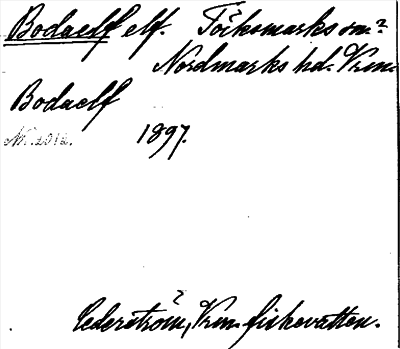 Bodaelf elf. Töcksmarks sn?
Nordmarks hd. Vrm.
Bodaelf
1897.
?
Cederström, Vrm. fiskevatten.